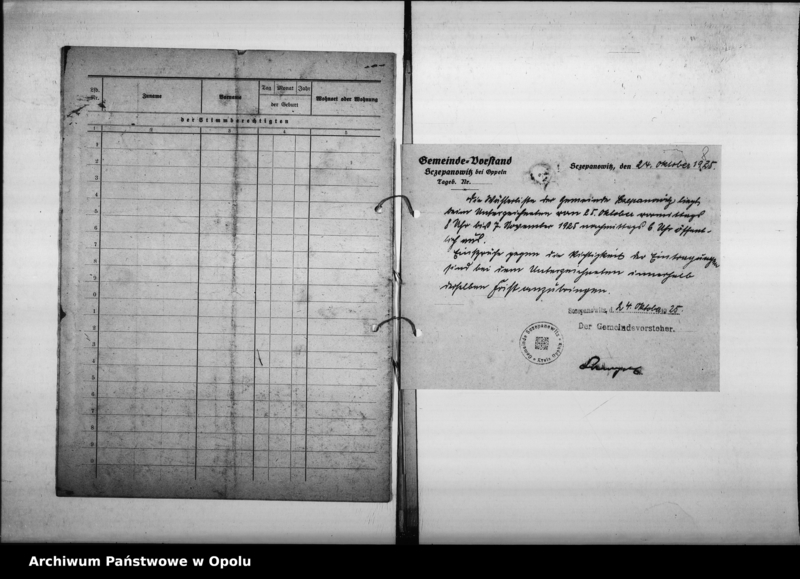 Lfd. Nr.
Zuname
Vorname
Tag
Monat
Jahr
der Geburt
Wohnort oder Wohnung
der Stimmberechtigten
1
2
3
4
5
Gemeinde-Vorstand
Sczepanowitz bei Oppeln
Tageb. Nr.
Sczepanowitz, den 24. Oktober 1925.
Die Wählerliste der Gemeinde Sczepanowitz liegt
beim Unterzeichneten vom 25. Oktober vormittags
8 Uhr bis 7. November 1925 nachmittags 6 Uhr öffent-
lich aus.
Einsprüche gegen die Richtigkeit der Eintragungen
sind bei dem Unterzeichneten innerhalb
derselben Frist anzubringen.
Sczepanowitz, d. 24. Oktober 25.
Der Gemeindevorsteher.
Gemeinde Sczepanowitz * Kreis Oppeln *
Archiwum Państwowe w Opolu